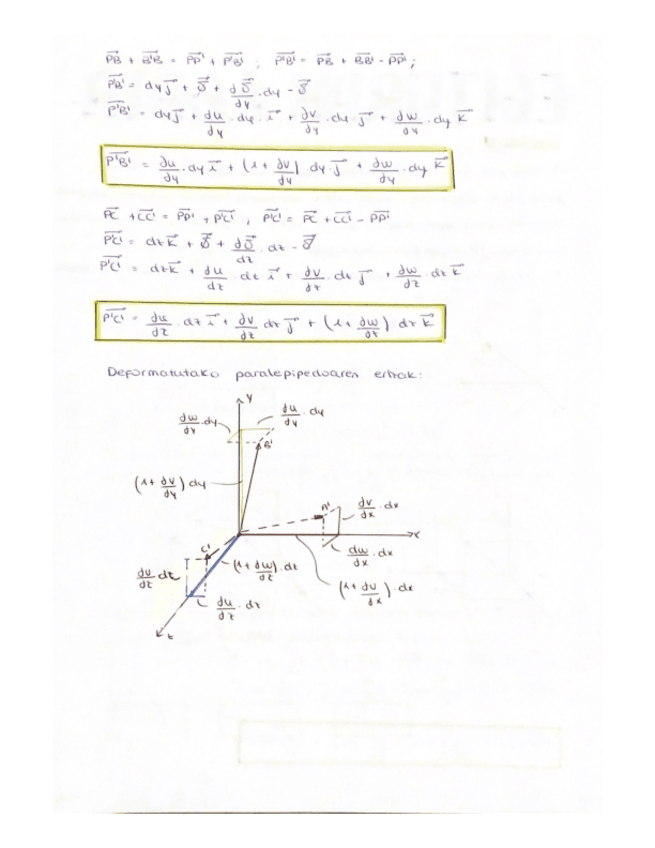 PB⃗ + B'B⃗ = PP'⃗ + P'B'⃗ ; P'B'⃗ = PB⃗ + BB'⃗ - PP'⃗ ;
P'B'⃗ = dy j⃗ + δ⃗ + ∂δ⃗/∂y · dy - δ⃗
P'B'⃗ = dy j⃗ + ∂u/∂y · dy · i⃗ + ∂v/∂y · dy j⃗ + ∂w/∂y · dy k⃗
P'B'⃗ = ∂u/∂y · dy i⃗ + (1 + ∂v/∂y) dy · j⃗ + ∂w/∂y · dy k⃗
PC⃗ + CC'⃗ = PP'⃗ + P'C'⃗ ; P'C'⃗ = PC⃗ + CC'⃗ - PP'⃗
P'C'⃗ = dz k⃗ + δ⃗ + ∂δ⃗/∂z · dz - δ⃗
P'C'⃗ = dz k⃗ + ∂u/∂z · dz i⃗ + ∂v/∂z · dz j⃗ + ∂w/∂z · dz k⃗
P'C'⃗ = ∂u/∂z · dz i⃗ + ∂v/∂z dz j⃗ + (1 + ∂w/∂z) dz k⃗
Deformatutako paralepipedoaren ertzak:
y
∂w/∂y · dy
∂u/∂y · dy
B'
(1 + ∂v/∂y) dy
A'
∂v/∂x · dx
x
∂w/∂x · dx
C'
(1 + ∂w/∂z) · dz
∂v/∂z dz
(1 + ∂u/∂x) · dx
∂u/∂z · dz
z